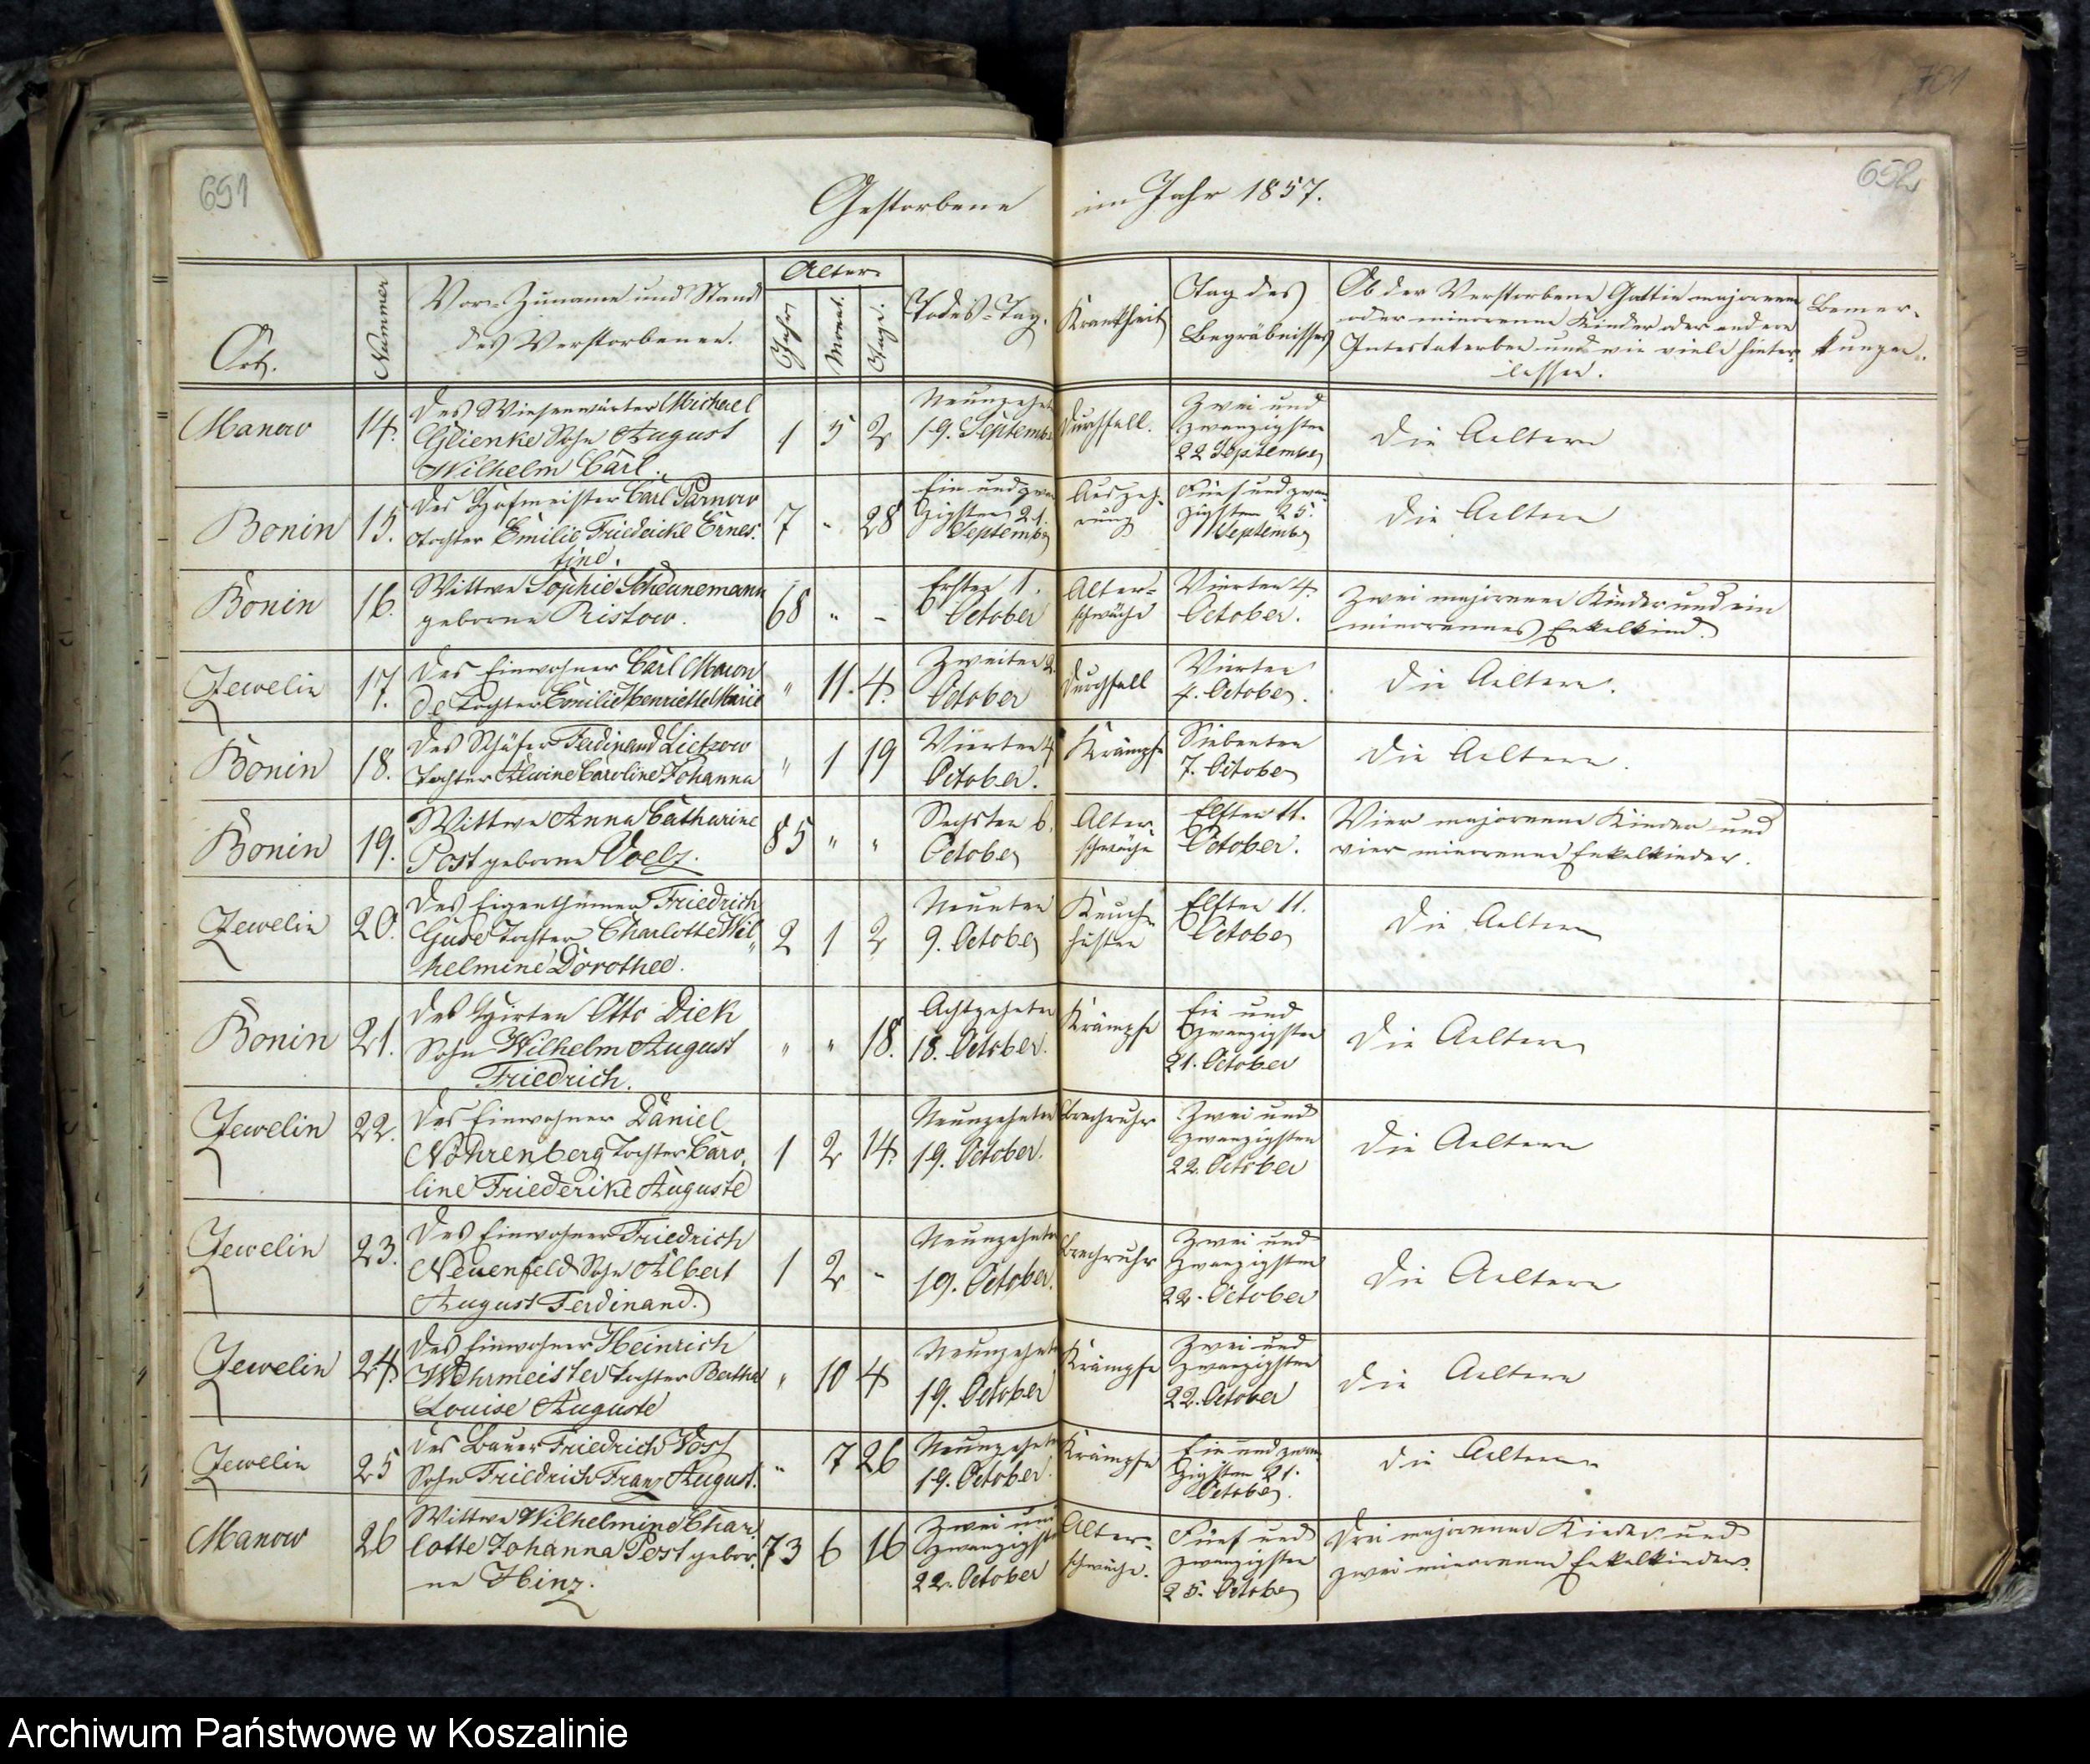 701
651
652
Gestorbene im Jahr 1857.
Ort.
Nummer
Vor- Zuname und Stand
des Verstorbenen.
Alter.
Jahr
Monat.
Tage.
Todes-Tag.
Krankheit
Tag des
Begräbnisses
Ob der Verstorbene Gattin majorenne
oder minorenne Kinder oder andere
Intestaterben und wie viele hinter-
lassen.
Bemer-
kungen.
Manow 14.
des Wiesenwärter Michael
Glienke Sohn August
Wilhelm Carl.
1 5 2
Neunzehnte
19. September
Durchfall.
Zwei und
zwanzigsten
22 September
die Aeltern
Bonin 15.
des Hofmeister Carl Parnow
Tochter Emilie Friedericke Ernes-
tine.
7 " 28
Ein und zwan
zigsten 21.
September
Auszeh-
rung
Fünf und zwan
zigsten 25.
September
die Aeltern
Bonin 16.
Wittwe Sophie Scheunemann
geborne Ristow.
68 " -
Ersten 1.
October
Alter-
schwäche
Vierten 4.
October.
Zwei majorenne Kinder und ein
minorennes Enkelkind.
Jewelin 17.
des Einwohner Carl Maron
de Tochter Emilie Henriette Marie
" 11. 4.
Zweiten 2.
October
Durchfall
Vierten
4. October.
die Aeltern.
Bonin 18.
des Schäfer Ferdinand Lietzow
Tochter Alwine Caroline Johanna
" 1 19
Vierten 4
October.
Krämpfe
Siebenten
7. October
die Aeltern.
Bonin 19.
Wittwe Anna Catharine
Post geborne Voelz.
85 " "
Sechsten 6.
October
Alter
schwäche
Elften 11.
October.
Vier majorenne Kinder und
vier minorenne Enkelkinder.
Jewelin 20.
des Eigenthümer Friedrich
Gude Tochter Charlotte Wil-
helmine Dorothee.
2 1 2
Neunten
9. October
Keuch-
husten
Elften 11.
October
die Aeltern
Bonin 21.
des Hirten Otto Diek
Sohn Wilhelm August
Friedrich.
" " 18.
Achtzehnten
18. October.
Krämpfe
Ein und
zwanzigsten
21. October
die Aeltern
Jewelin 22.
des Einwohner Daniel
Nohrenberg Tochter Caro-
line Friederike Auguste
1 2 14.
Neunzehnten
19. October.
Brechruhr
Zwei und
zwanzigsten
22. October
die Aeltern
Jewelin 23.
des Einwohner Friedrich
Neuenfeld Sohn Albert
August Ferdinand.
1 2 -
Neunzehnten
19. October.
Brechruhr
Zwei und
zwanzigsten
22. October
die Aeltern
Jewelin 24
des Einwohner Heinrich
Wehrmeister Tochter Bertha
Louise Auguste
" 10 4
Neunzehnte
19. October
Krämpfe
Zwei und
zwanzigsten
22. October
die Aeltern
Jewelin 25
des Bauer Friedrich Voss
Sohn Friedrich Franz August.
" 7 26
Neunzehnten
19. October.
Krämpfe
Ein und zwan
zigsten 21.
October.
die Aeltern
Manow 26
Wittwe Wilhelmine Char
lotte Johanna Post gebor-
ne Hinz.
73 6 16
Zwei und
zwanzigste
22. October
Alter-
schwäche.
Fünf und
zwanzigsten
25. October
Drei majorenne Kinder und
zwei minorenne Enkelkinder.
Archiwum Państwowe w Koszalinie